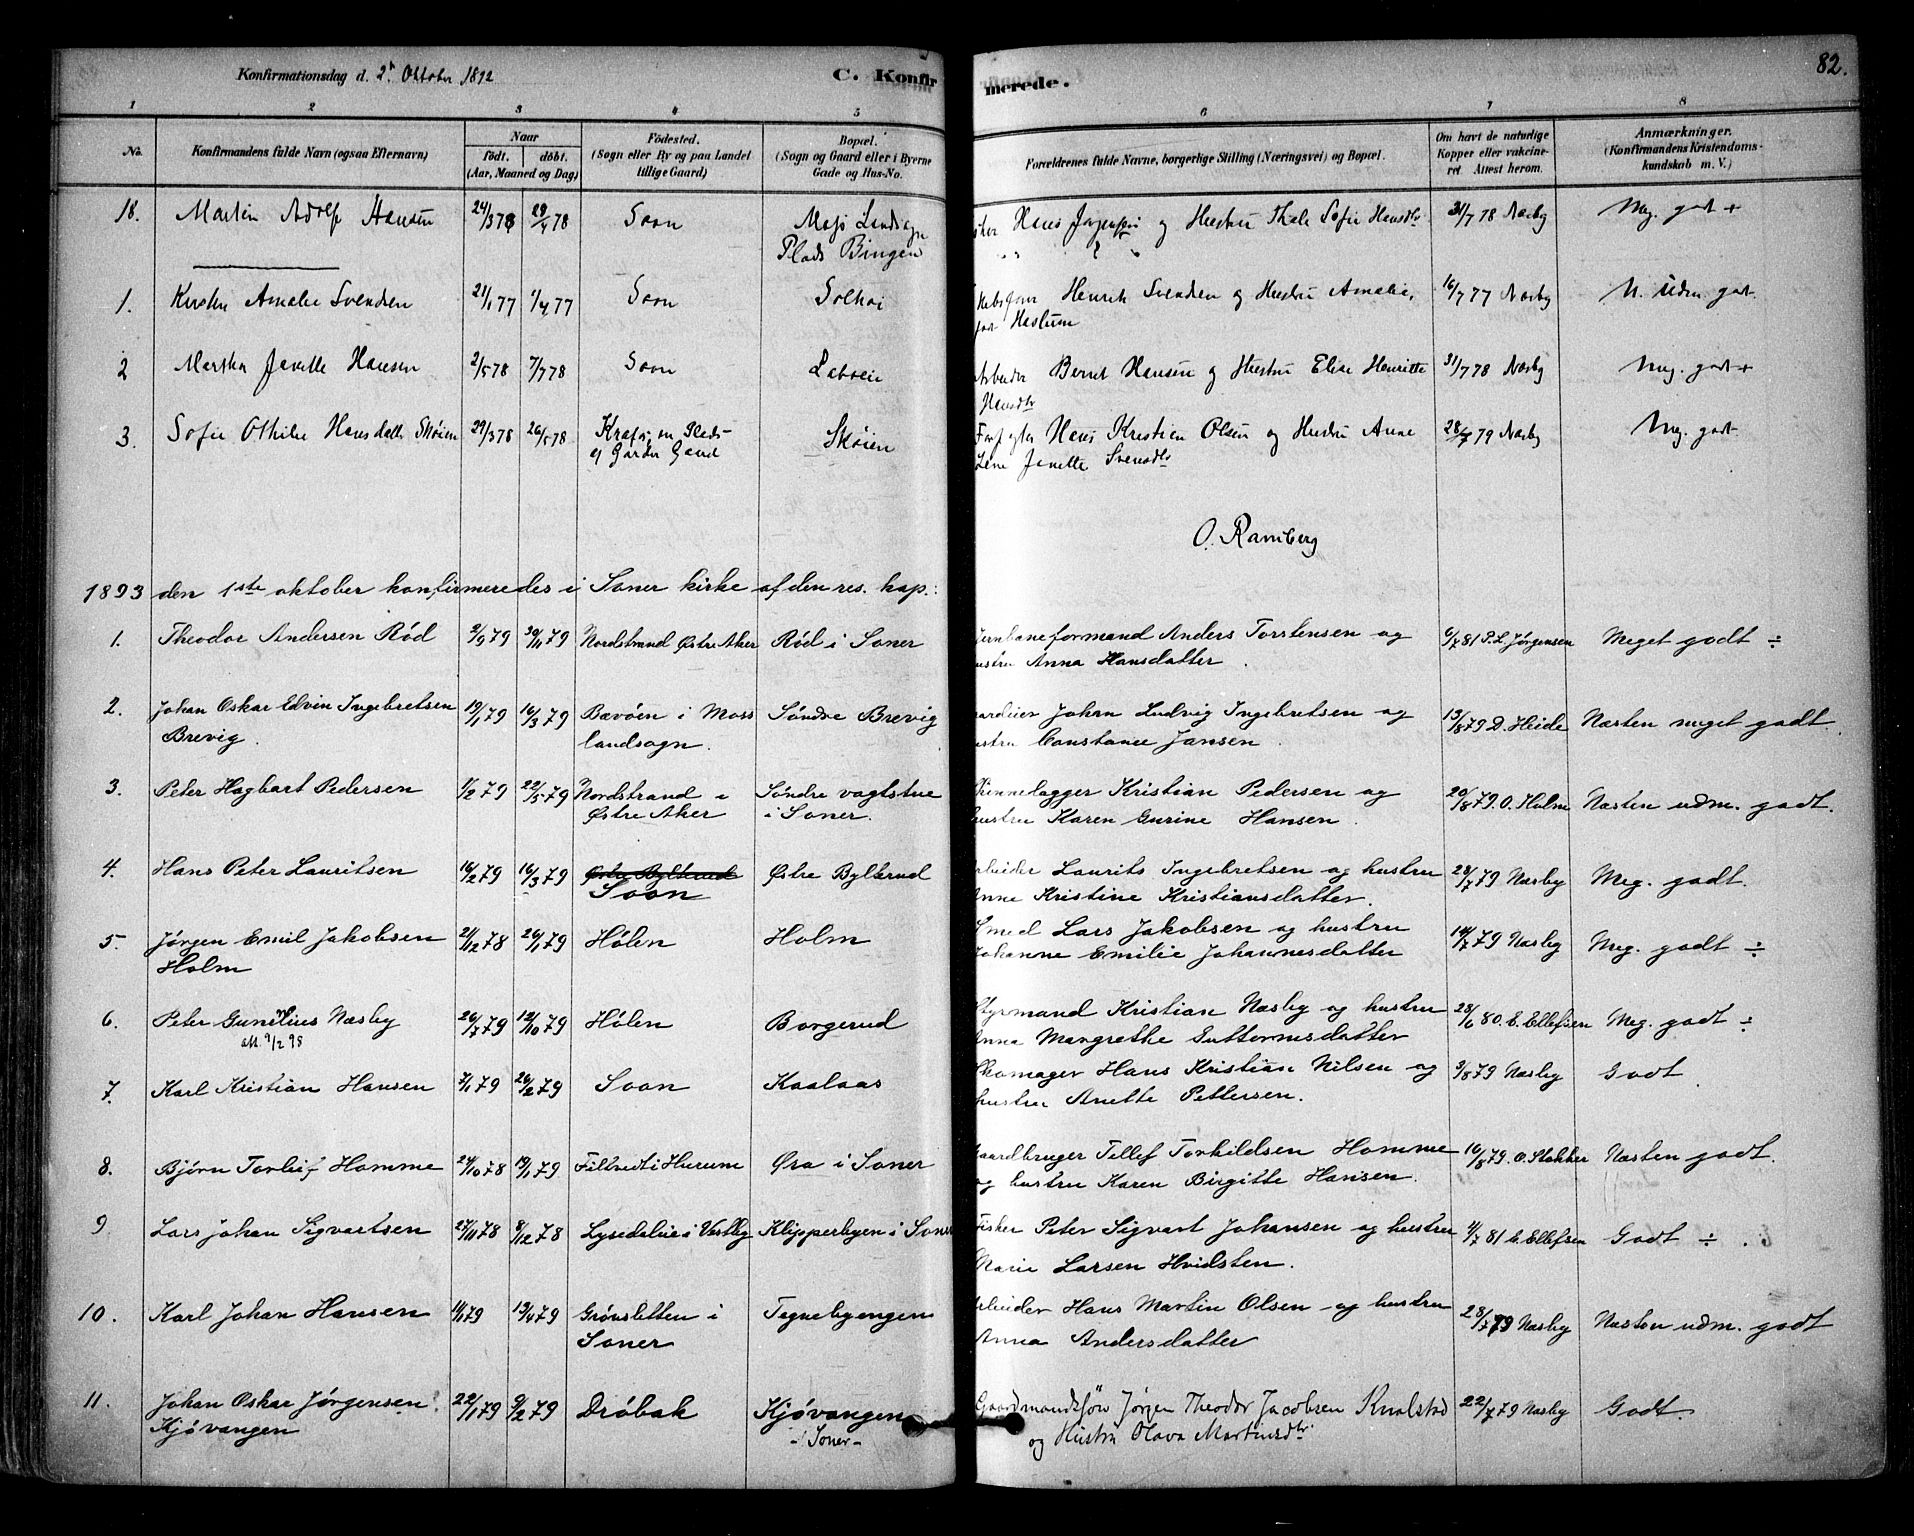 Konfirmationsdag d. 2. Oktober 1892
C. Konfir
merede.
82.
1 2 3 4 5 6 7 8
No. Konfirmandens fulde Navn (ogsaa Efternavn)
Naar
födt. döbt.
(Aar, Maaned og Dag)
Födested.
(Sogn eller By og paa Landet
tillige Gaard)
Bopæl.
(Sogn og Gaard eller i Byerne
Gade og Hus-No.
Forældrenes fulde Navne, borgerlige Stilling (Næringsvei) og Bopæl.
Om havt de naturlige
Kopper eller vakcine-
ret. Attest herom.
Anmærkninger.
(Konfirmandens Kristendoms-
kundskab m. V.)
18. Martin Adolf Hansen 24/3 78 29/4 78 Soon Moss Landsogn Hans og Hustru Thale Sofie Hansdtr 31/7 78 Næsby Meg. godt +
Plads Bingen
1. Amalie Svendsen 21/1 77 1/4 77 Soon Solhøi Henrik Svendsen og Hustru Amalie 16/7 77 Næsby M. Udm. godt
Haslum
2 Martha Janette Hansen 2/5 78 7/7 78 Soon Bernt Hansen og Hustru Elise Henriette 31/7 78 Næsby Meg. godt +
Hansdtr
3. Sofie Othilie Hansdatter Skøien 29/3 78 26/5 78 Plads Skøien Hans Kristian Olsen og Hustru Anne 28/7 79 Næsby Meg. godt
Lene Janette Svensdtr
O. Ramberg
1893 den 1ste oktober konfirmeredes i Soner kirke af den res. kap.:
1. Theodor Andersen Rød 2/9 79 30/11 79 Nordstrand Østre Aker Rød i Soner Jernbaneformand Anders Torstensen og 6/7 81 P. L. Jørgensen Meget godt ÷
hustru Anna Hansdatter.
2. Johan Oskar Edvin Ingebretsen 19/1 79 16/3 79 Bævøen i Moss Søndre Brevig Johan Ludvig Ingebretsen og 13/8 79 D. Heide Næsten meget godt.
Brevig. landsogn. hustru Constance Jansen.
3. Peter Hagbart Pedersen 1/2 79 22/5 79 Nordstrand i Søndre vagtstue Skinnelægger Kristian Pedersen og 20/8 79. O. Holm Næsten udm. godt.
Østre Aker i Soner. hustru Karen Gurine Hansen.
4. Hans Peter Lauritsen 16/2 79 16/3 79 Østre Bylterud Østre Bylterud Arbeider Laurits Ingebretsen og hustru 28/7 79 Næsby Meg. godt.
Soon Anne Kristine Kristiansdatter.
5. Jørgen Emil Jakobsen 21/12 78 26/1 79 Hølen Holm Smed Lars Jakobsen og hustru 14/7 79 Næsby Meg. godt ÷
Holm Johanne Emilie Johannesdatter
6. Peter Gunelius Næsby 26/7 79 12/10 79 Hølen Borgerud Styrmand Kristian Næsby og hustru 28/6 80. E. Ellefsen Meg. godt ÷
att. 9/2 98 Anna Margrethe Guttormsdatter
7. Karl Kristian Hansen 7/1 79 26/2 79 Soon Kaalaas Skomager Hans Kristian Nilsen og 3/8 79 Næsby Godt.
hustru Anette Pettersen.
8. Bjørn Torleif Homme 24/10 78 19/1 79 Filtvedt i Hurum Øra i Soner Gaardbruger Tellef Torkildsen Homme 16/8 79. O. Stokker Næsten godt.
og hustru Karen Birgitte Hansen.
9 Lars Johan Sigvartsen 27/11 78 8/12 78 Lysedalrie i Vestby Klipperbyen i Soner Fisker Peter Sigvart Johansen og hustru 4/7 81 E. Ellefsen Godt ÷
Marie Larsen Hvidsten.
10. Karl Johan Hansen 11/1 79 13/4 79 Grønsletten i Tegnebyengen Arbeider Hans Martin Olsen og hustru 28/7 79 Næsby Næsten udm. godt
Soner Anna Andersdatter
11. Johan Oskar Jørgensen 22/1 79 9/2 79 Drøbak Kjøvangen Gaardmandssøn Jørgen Theodor Jacobsen Knalstad 22/7 79 Næsby Godt.
Kjøvangen - Soner - og Hustru Olava Martinsdtr